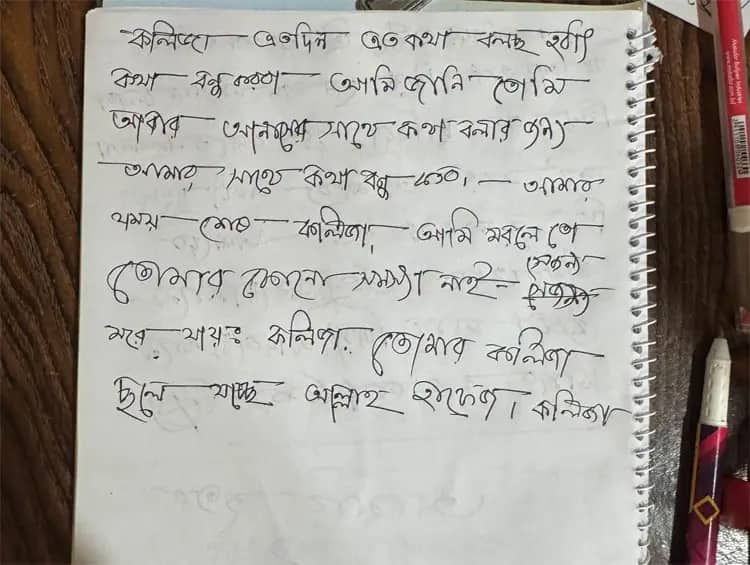 কলিজা এতদিন এত কথা বলছ হঠাৎ
কথা বন্ধু করলা আমি জানি তোমি
আবার আনাসের সাথে কথা বলার জন্য
আমার সাথে কথা বন্ধু
আমার
সময় শেষ কলিজা, আমি মরলে তো
তোমার কোনো সমস্যা নাই- সেজন্য
মরে যায়ঃ কলিজা. তোমার কলিজা
ছলে যাচ্ছে আল্লাহ হাফেজ। কলিজা